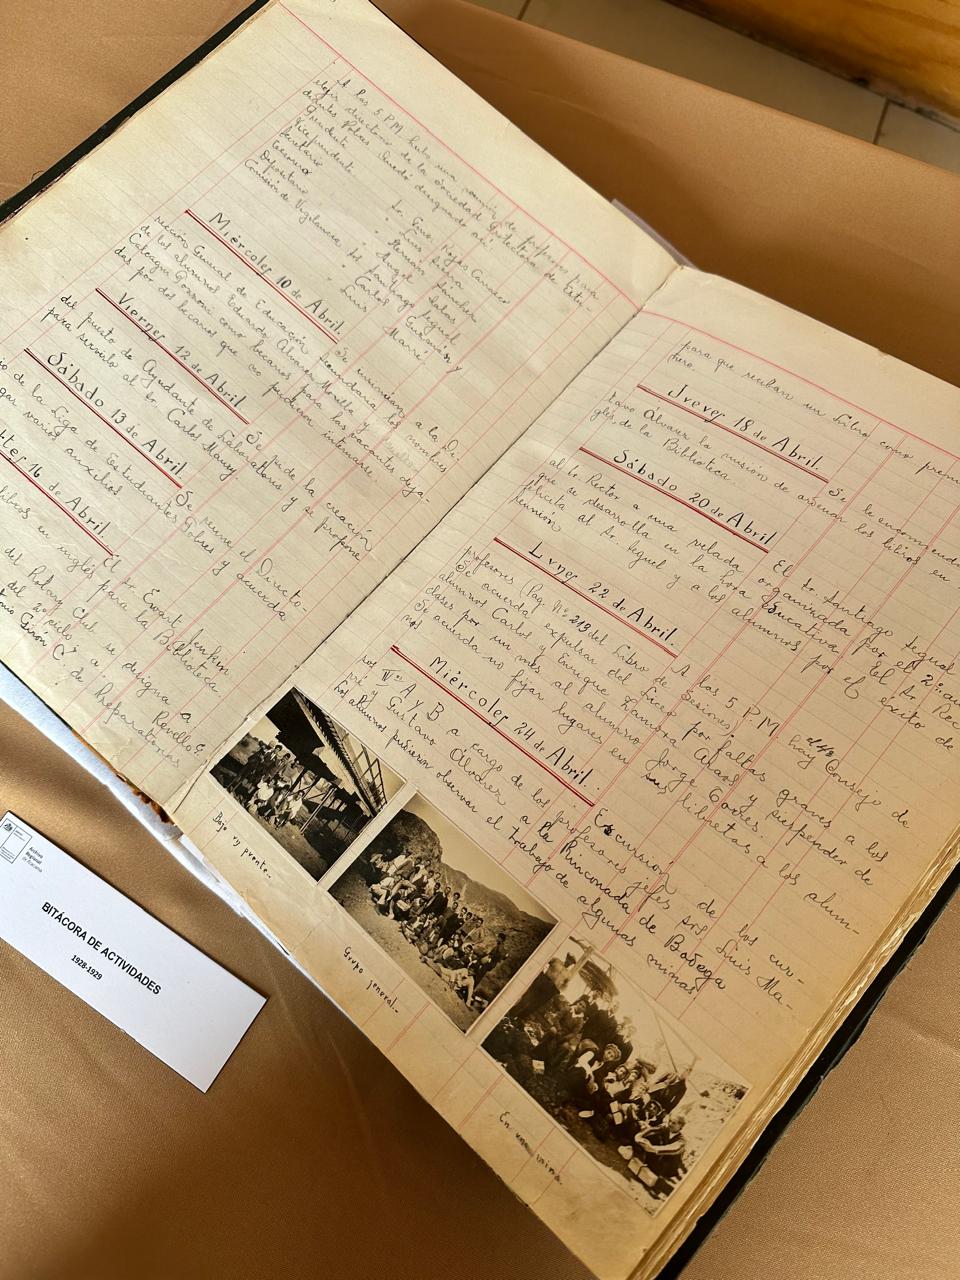 A las 5 P.M. hubo una reunión de profesores para
elegir directorio de la Sociedad Protectora de Estu-
diantes Pobres. Quedó designado así:
Presidente
Vice presidente
Secretario
Tesorero
Depositario
Comisión de Vigilancia
Sr. Reyes Carrasco
" Luis
" Hernán Sánchez
" Angel Salas
" Santiago Seguel
" Carlos Guzmán y
" Luis Marré
Miércoles 10 de Abril. Se envían a la Di-
rección General de Educación Secundaria los nombres
de los alumnos Eduardo Alvarez Morilla y
Calcagni Gozzoni como becarios para las vacantes deja-
das por dos becarios que no pudieron internarse.
Viernes 12 de Abril. Se pide la creación
del puesto de Ayudante de Laboratorio y se propone
para servirlo al Sr. Carlos
Sábado 13 de Abril. Se reune el Directo-
rio de la Liga de Estudiantes Pobres y acuerda
varios auxilios
16 de Abril. El Sr. Ewart
libros en inglés para la Biblioteca
del Rotary Club se designa a
del 2º ciclo y a Revello
Girón C. de Preparatorias
para que reciban un libro como premio
Jueves 18 de Abril. Se le encomienda
tavo Alvarez la misión de ordenar los libros en
glés de la Biblioteca.
Sábado 20 de Abril El Sr. Santiago Seguel
al Sr. Rector a una velada organizada por el 2º. año
que se desarrolla en la hora educativa. El Sr. Rec
felicita al Sr. Seguel y a los alumnos por el éxito de
reunión
Lunes 22 de Abril. A las 5 P.M. hay Consejo de
profesores (Pag. Nº. 213 del Libro de Sesiones).
Se acuerda expulsar del Liceo por faltas graves a los
alumnos Carlos y Enrique Zamora Alfaro y suspender de
clases por un mes al alumno Jorge Torres.
Se acuerda no fijar lugares en sus libretas a los alum-
nos
Miércoles 24 de Abril. Excursión de los cur-
sos Vº. A y B a cargo de los profesores jefes Srs Luis Ma-
rré y Gustavo Alvarez a la Rinconada de Bodega
Los alumnos pudieron observar el trabajo de algunas minas.
Bajo un puente..
Grupo general..
En una mina.
Archivo
Regional
de Atacama
BITÁCORA DE ACTIVIDADES
1928-1929